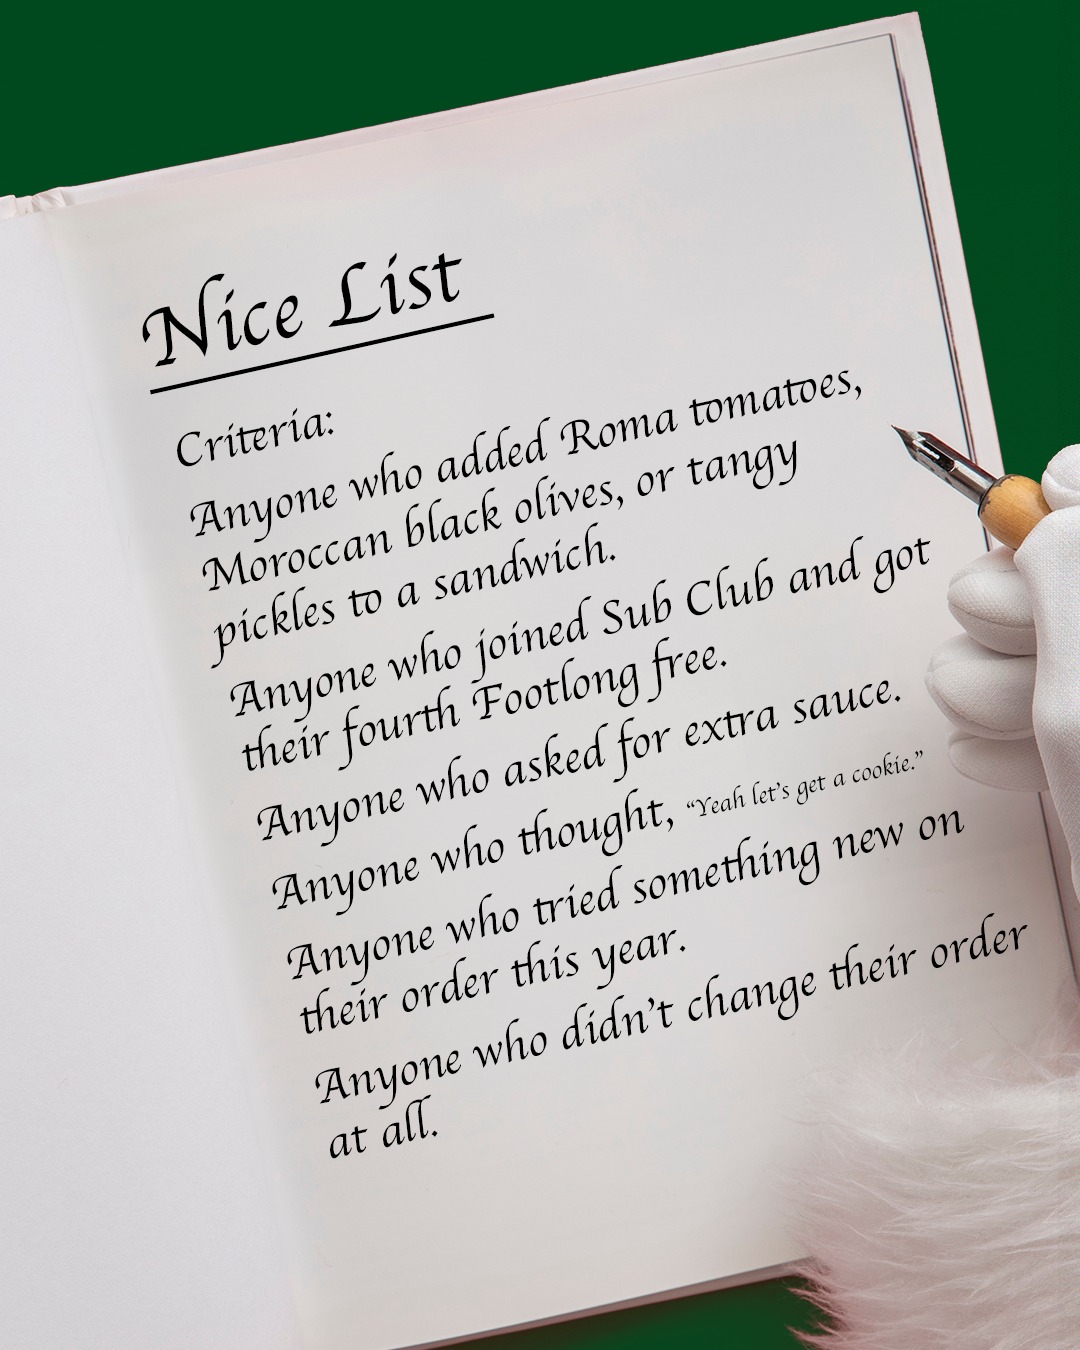 Nice List
Criteria:
Anyone who added Roma tomatoes,
Moroccan black olives, or tangy
pickles to a sandwich.
Anyone who joined Sub Club and got
their fourth Footlong free.
Anyone who asked for extra sauce.
Anyone who thought, “Yeah let’s get a cookie.”
Anyone who tried something new on
their order this year.
Anyone who didn’t change their order
at all.